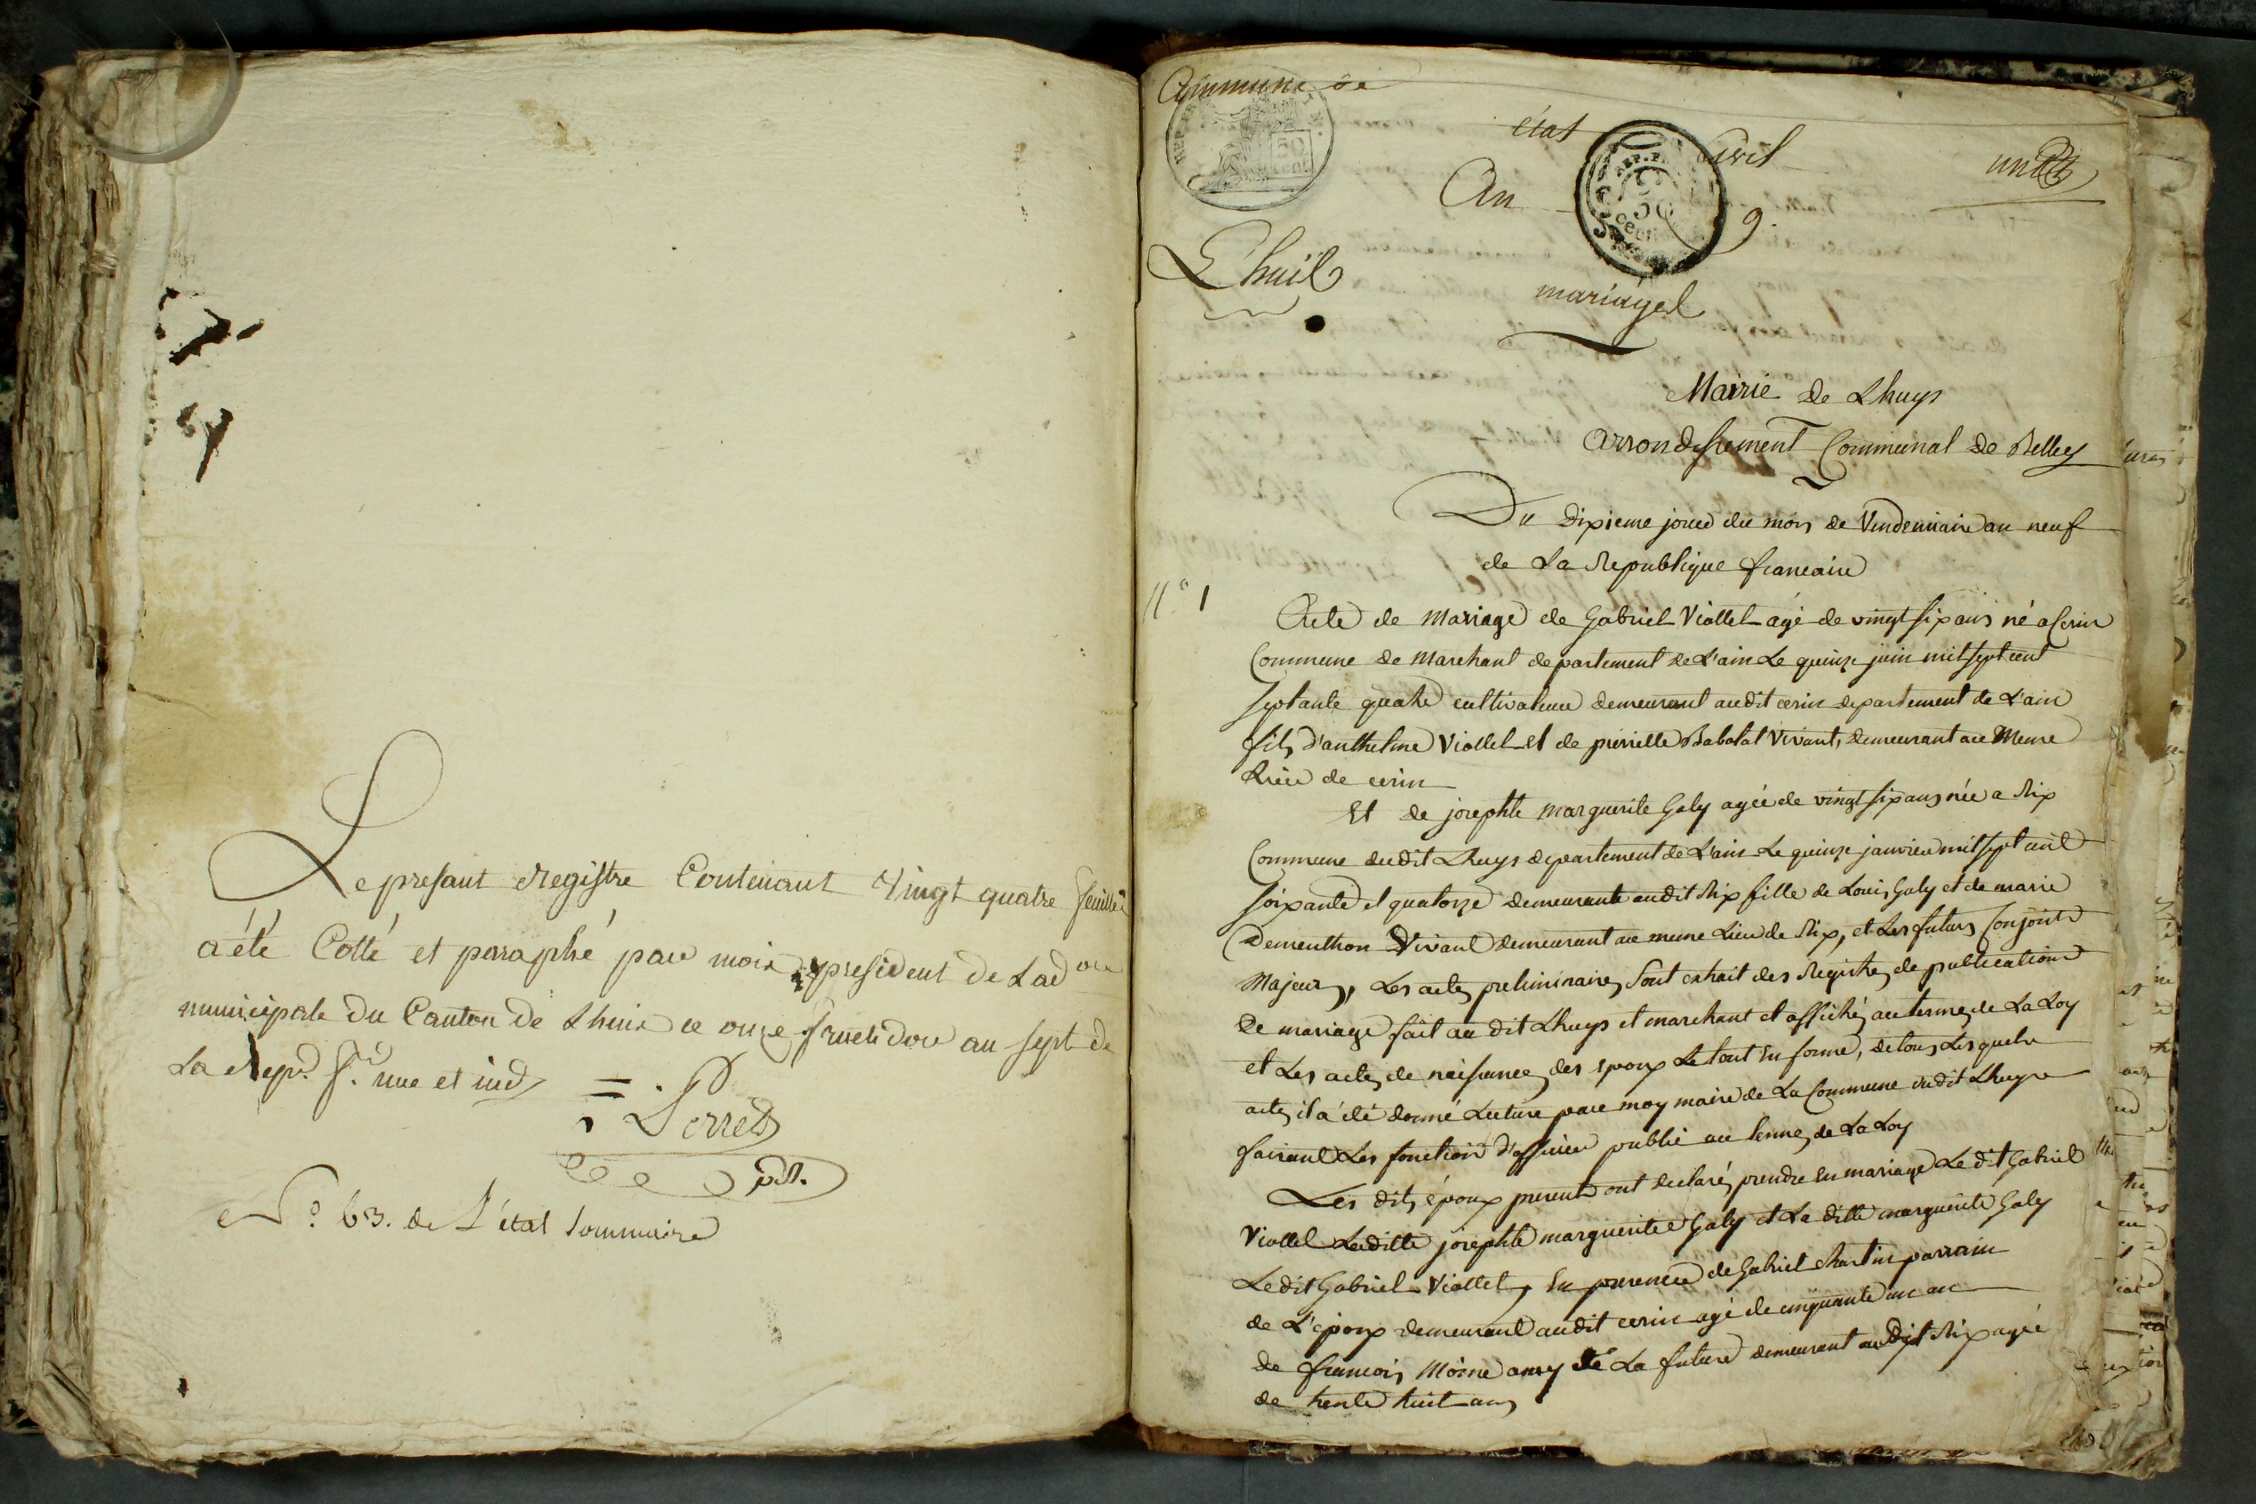 Le presant Registre Contenant Vingt quatre feuillet
a été Cotté et paraphé par moi president de Lad on
municipale du Canton de Lhuis ce onze fructidor an sept de
La Rep. f. une et ind
Perret
pdt.
N° 63. de L'état Sommaire
Commune de
état Civil
An 9.
un
Lhuil
mariages
Mairie de Lhuys
Arrondissement Communal de Belley
Du dixieme jour du mois de Vendemiaire an neuf
de La Republique francaire
N° 1
Acte de Mariage de Gabriel Viollet agé de vingt six ans né a Cerin
Commune de Marchant departement de L'ain Le quinze juin mil sept cent
septante quatre cultivateur demeurant audit cerin departement de L'ain
fils d'anthelme Viollet et de pierrette Babolat Vivant, demeurant au Meme
Lieu de cerin
Et de josephte Marguerite Galy agée de vingt six ans née a Rix
Commune dudit Lhuys departement de L'ain Le quinze janvier mil sept cent
soixante et quatorze demeurante audit Rix fille de Louis Galy et de marie
Dementhon Vivant demeurant au meme Lieu de Rix, et Les futurs Conjoints
Majeurs, Les actes preliminaires sont extrait des Registres de publications
de mariage fait au dit Lhuys et marchant et affichés au termes de La Loy
et Les actes de naissances des epoux Le tout en forme, de tous Lesquels
actes il a été donné Lecture par moy maire de La Commune dudit Lhuys
faisant Les fonction d'officier public au termes de La Loy
Les dits époux present ont declarés prendre en mariage Le dit Gabriel
Viollet Laditte josephte marguerite Galy et La ditte marguerite Galy
Ledit Gabriel Viollet, En presence de Gabriel Martin parrain
de L'epoux demeurant audit cerin agé de cinquante un an
de francois Moine amy de La future demeurant audit Rix agée
de trente huit ans